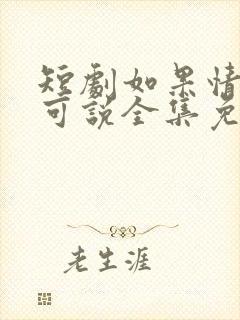 短劇如果情
可說全集免
老生涯